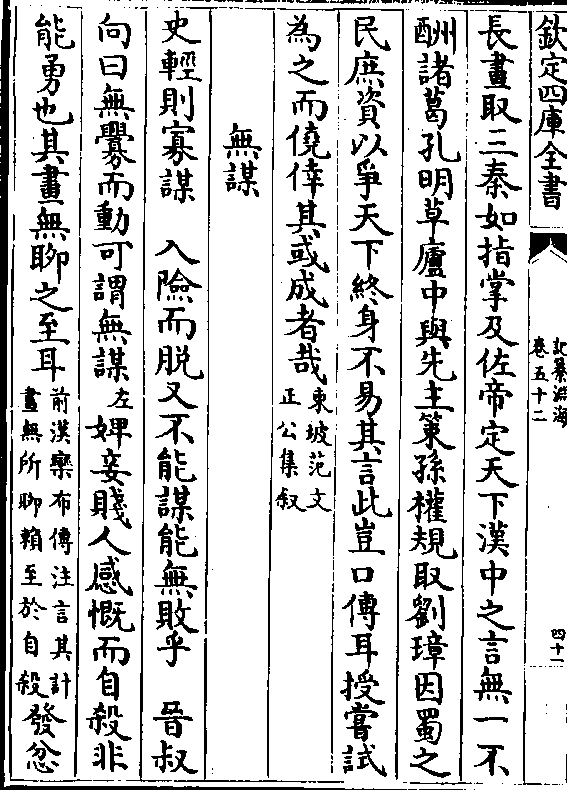 欽定四庫全書
記纂淵海
卷五十二
四十一
長畫取三秦如指掌及佐帝定天下漢中之言無一不
酬諸葛孔明草廬中與先主策孫權規取劉璋因蜀之
民庶資以爭天下終身不易其言此豈口傳耳授嘗試
為之而僥倖其或成者哉東坡范文
正公集叙
無謀
史輕則寡謀 入險而脱又不能謀能無敗乎 晉叔
向曰無釁而動可謂無謀左 婢妾賤人感慨而自殺非
能勇也其畫無聊之至耳前漢欒布傳注言其計
畫無所聊賴至於自殺發忿